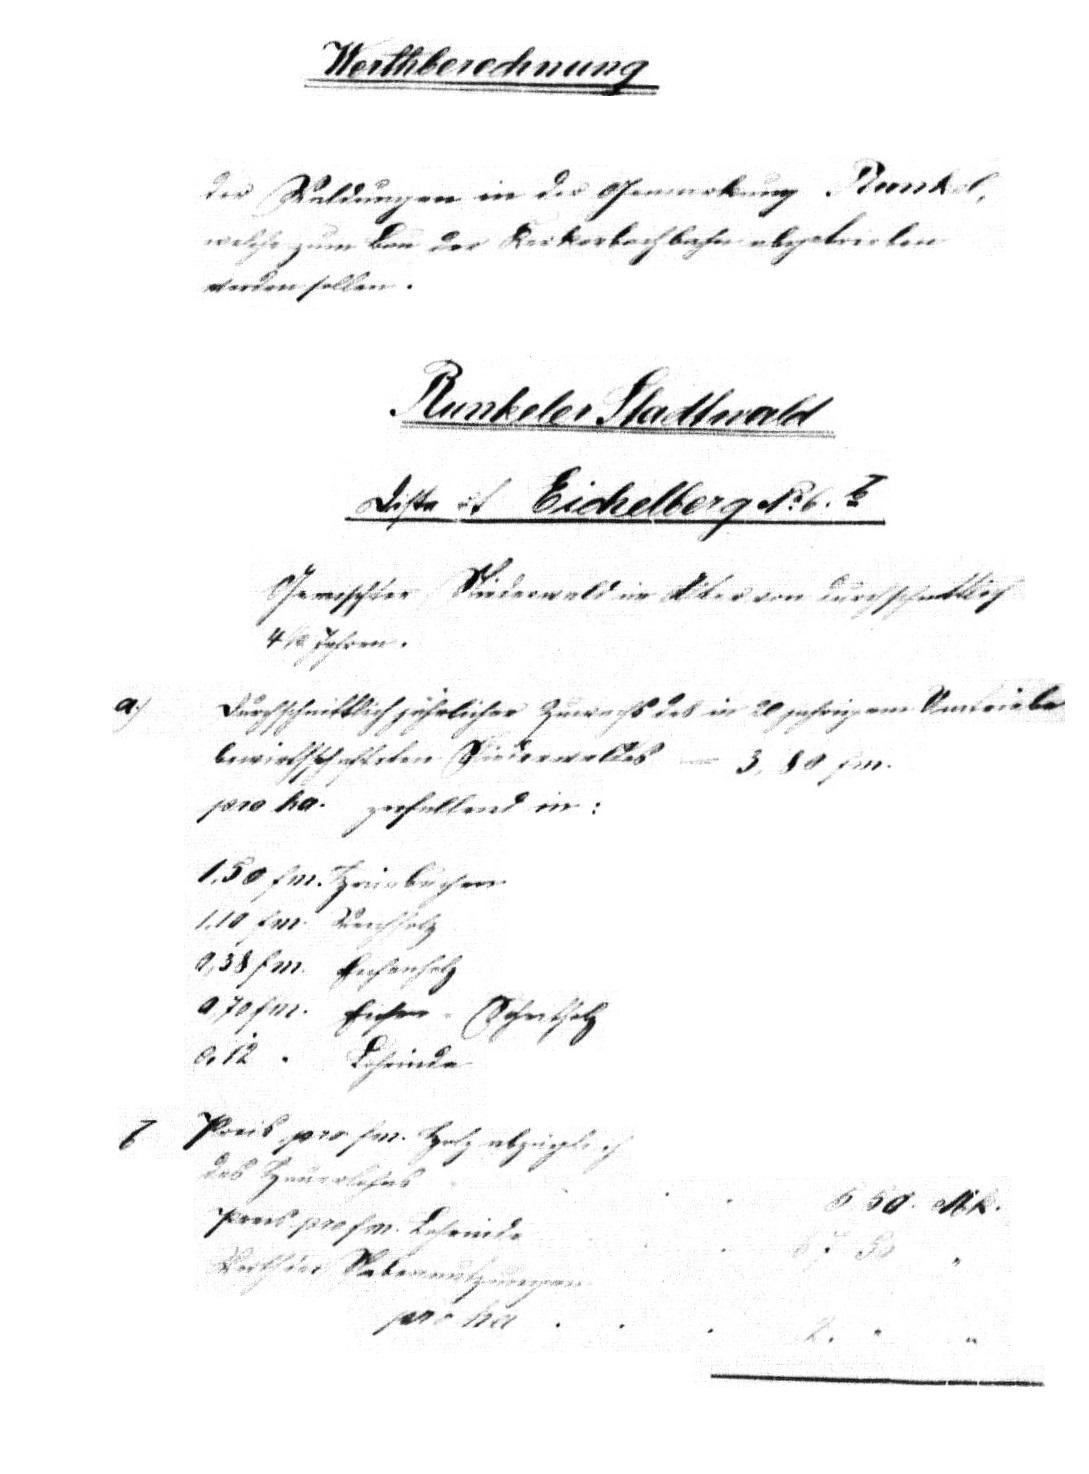 Werthberechnung
der Waldungen in der Gemarkung Runkel,
welche zum Bau der Kerkerbachbahn abgetrieben
werden sollen.
Runkeler Stadtwald
Distr Eichelberg No 6. b
Gemischter Niederwald im Alter von durchschnittlich
4 1/2 Jahren.
a.) Durchschnittlich jährlicher Zuwachs des in 20 jährigem Umtriebe
bewirthschafteten Niederwaldes — 3,80 fm.
pro ha. zerfallend in:
1,50 fm. Hainbuchen
1,10 fm. Weichholz
0,38 fm. Eichenholz
0,70 fm. Eichen-Schälholz
0,12 " Lohrinde
b Preis pro fm. Holz abzüglich
des Hauerlohns . . . 5 50. Mk.
Preis pro fm. Lohrinde . . 67 50 "
Werth der Nebennutzungen
pro ha . . . 2. " "